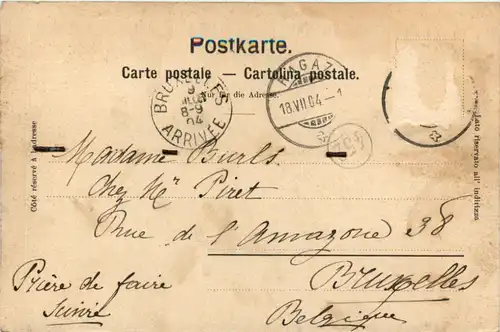 Postkarte.
Carte postale — Cartolina postale.
Nur für die Adresse.
BRUXELLES
8-9
04
ARRIVÉE
RAGAZ
18.VII.04 - 1
Côté réservé à l'adresse
Lato riservato all' indirizzo
Madame Burls
Chez Mr Piret
Rue de l'Amazone 38
Bruxelles
Belgique
Prière de faire
suivre